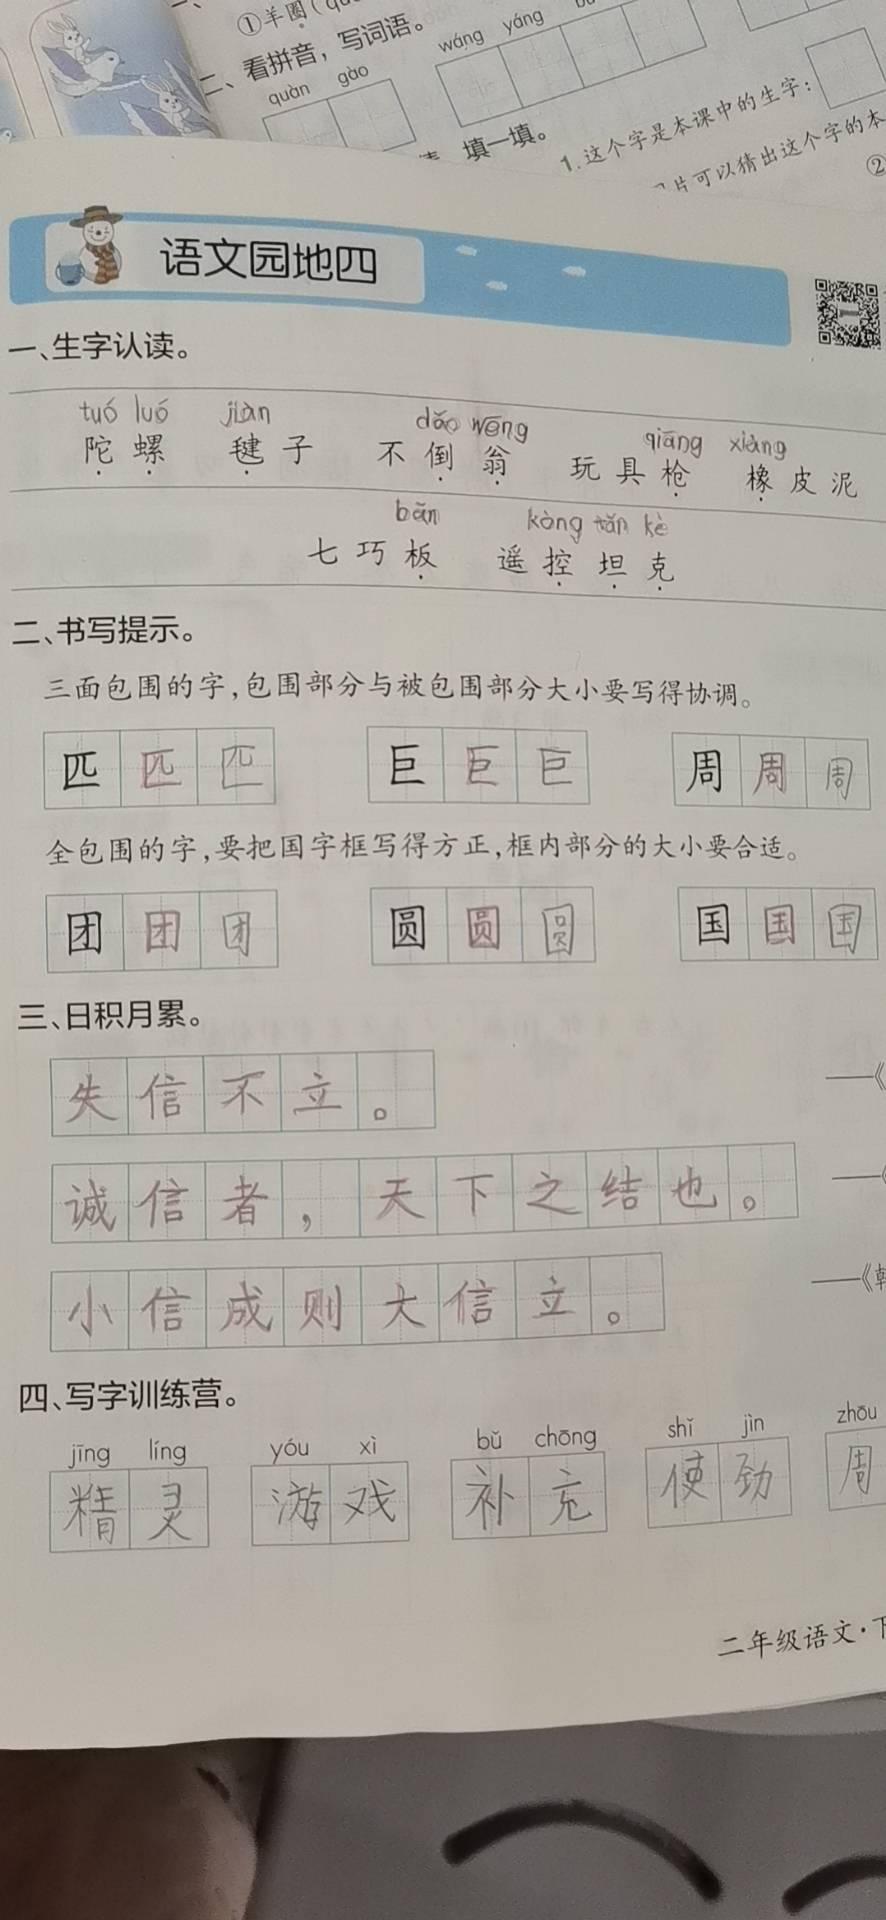 ①羊圈(qu
二、看拼音，写词语。
quàn gào
wáng yáng
填一填。
1.这个字是本课中的生字：
片可以猜出这个字的本
②
语文园地四
一、生字认读。
tuó luó jiàn dǎo wēng qiāng xiàng
陀螺 毽子 不倒翁 玩具枪 橡皮泥
bǎn kòng tǎn kè
七巧板 遥控坦克
二、书写提示。
三面包围的字,包围部分与被包围部分大小要写得协调。
匹 匹 匹 巨 巨 巨 周 周 周
全包围的字,要把国字框写得方正,框内部分的大小要合适。
团 团 团 圆 圆 圆 国 国 国
三、日积月累。
失信不立。 ——《
诚信者，天下之结也。 ——《
小信成则大信立。 ——《韩
四、写字训练营。
jīng líng yóu xì bǔ chōng shǐ jìn zhōu
精灵 游戏 补充 使劲 周
二年级语文·下